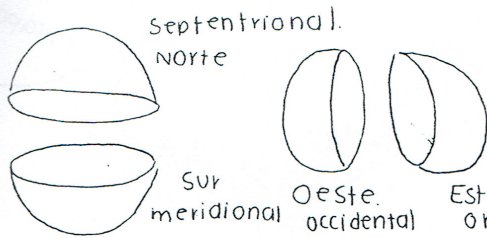 septentrional.
Norte
sur
meridional
Oeste.
occidental